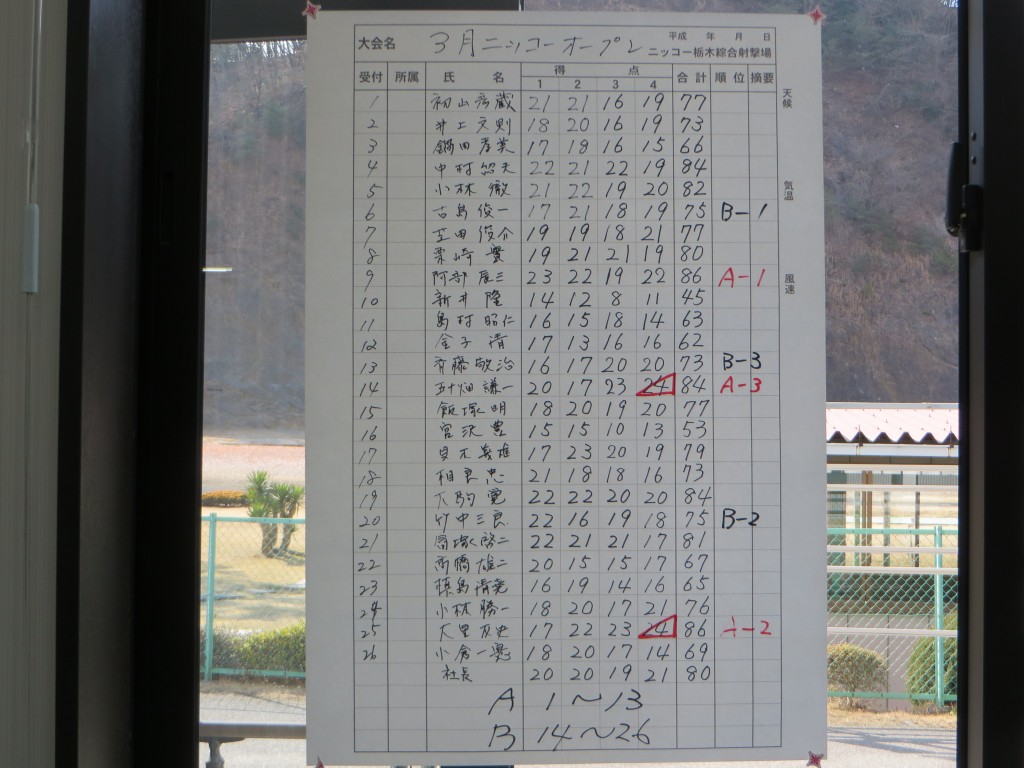 大会名 3月ニッコーオープン 平成 年 月 日
ニッコー栃木綜合射撃場
受付 所属 氏 名 得 点 合計 順位 摘要
1 2 3 4
天候
気温
風速
1 初山彦蔵 21 21 16 19 77
2 井上文則 18 20 16 19 73
3 鍋田 17 18 16 15 66
4 中村悠夫 22 21 22 19 84
5 小林 徹 21 22 19 20 82
6 古島俊一 17 21 18 19 75 B-1
7 田俊介 19 19 18 21 77
8 栗崎 實 19 21 21 19 80
9 阿部辰三 23 22 19 22 86 A-1
10 新井 隆 14 12 8 11 45
11 島村昭仁 16 15 18 14 63
12 金子 清 17 13 16 16 62
13 斉藤敬治 16 17 20 20 73 B-3
14 五十畑謙一 20 17 23 24 84 A-3
15 飯塚 明 18 20 19 20 77
16 宮沢 豊 15 15 10 13 53
17 木義雄 17 23 20 19 79
18 相良 忠 21 18 18 16 73
19 大駒 寛 22 22 20 20 84
20 竹中三良 22 16 19 18 75 B-2
21 塚啓二 22 21 21 17 81
22 高橋雄二 20 15 15 17 67
23 島清 16 19 14 16 65
24 小林勝一 18 20 17 21 76
25 大里 史 17 22 23 24 86 A-2
26 小倉一 18 20 17 14 69
社長 20 20 19 21 80
A 1〜13
B 14〜26